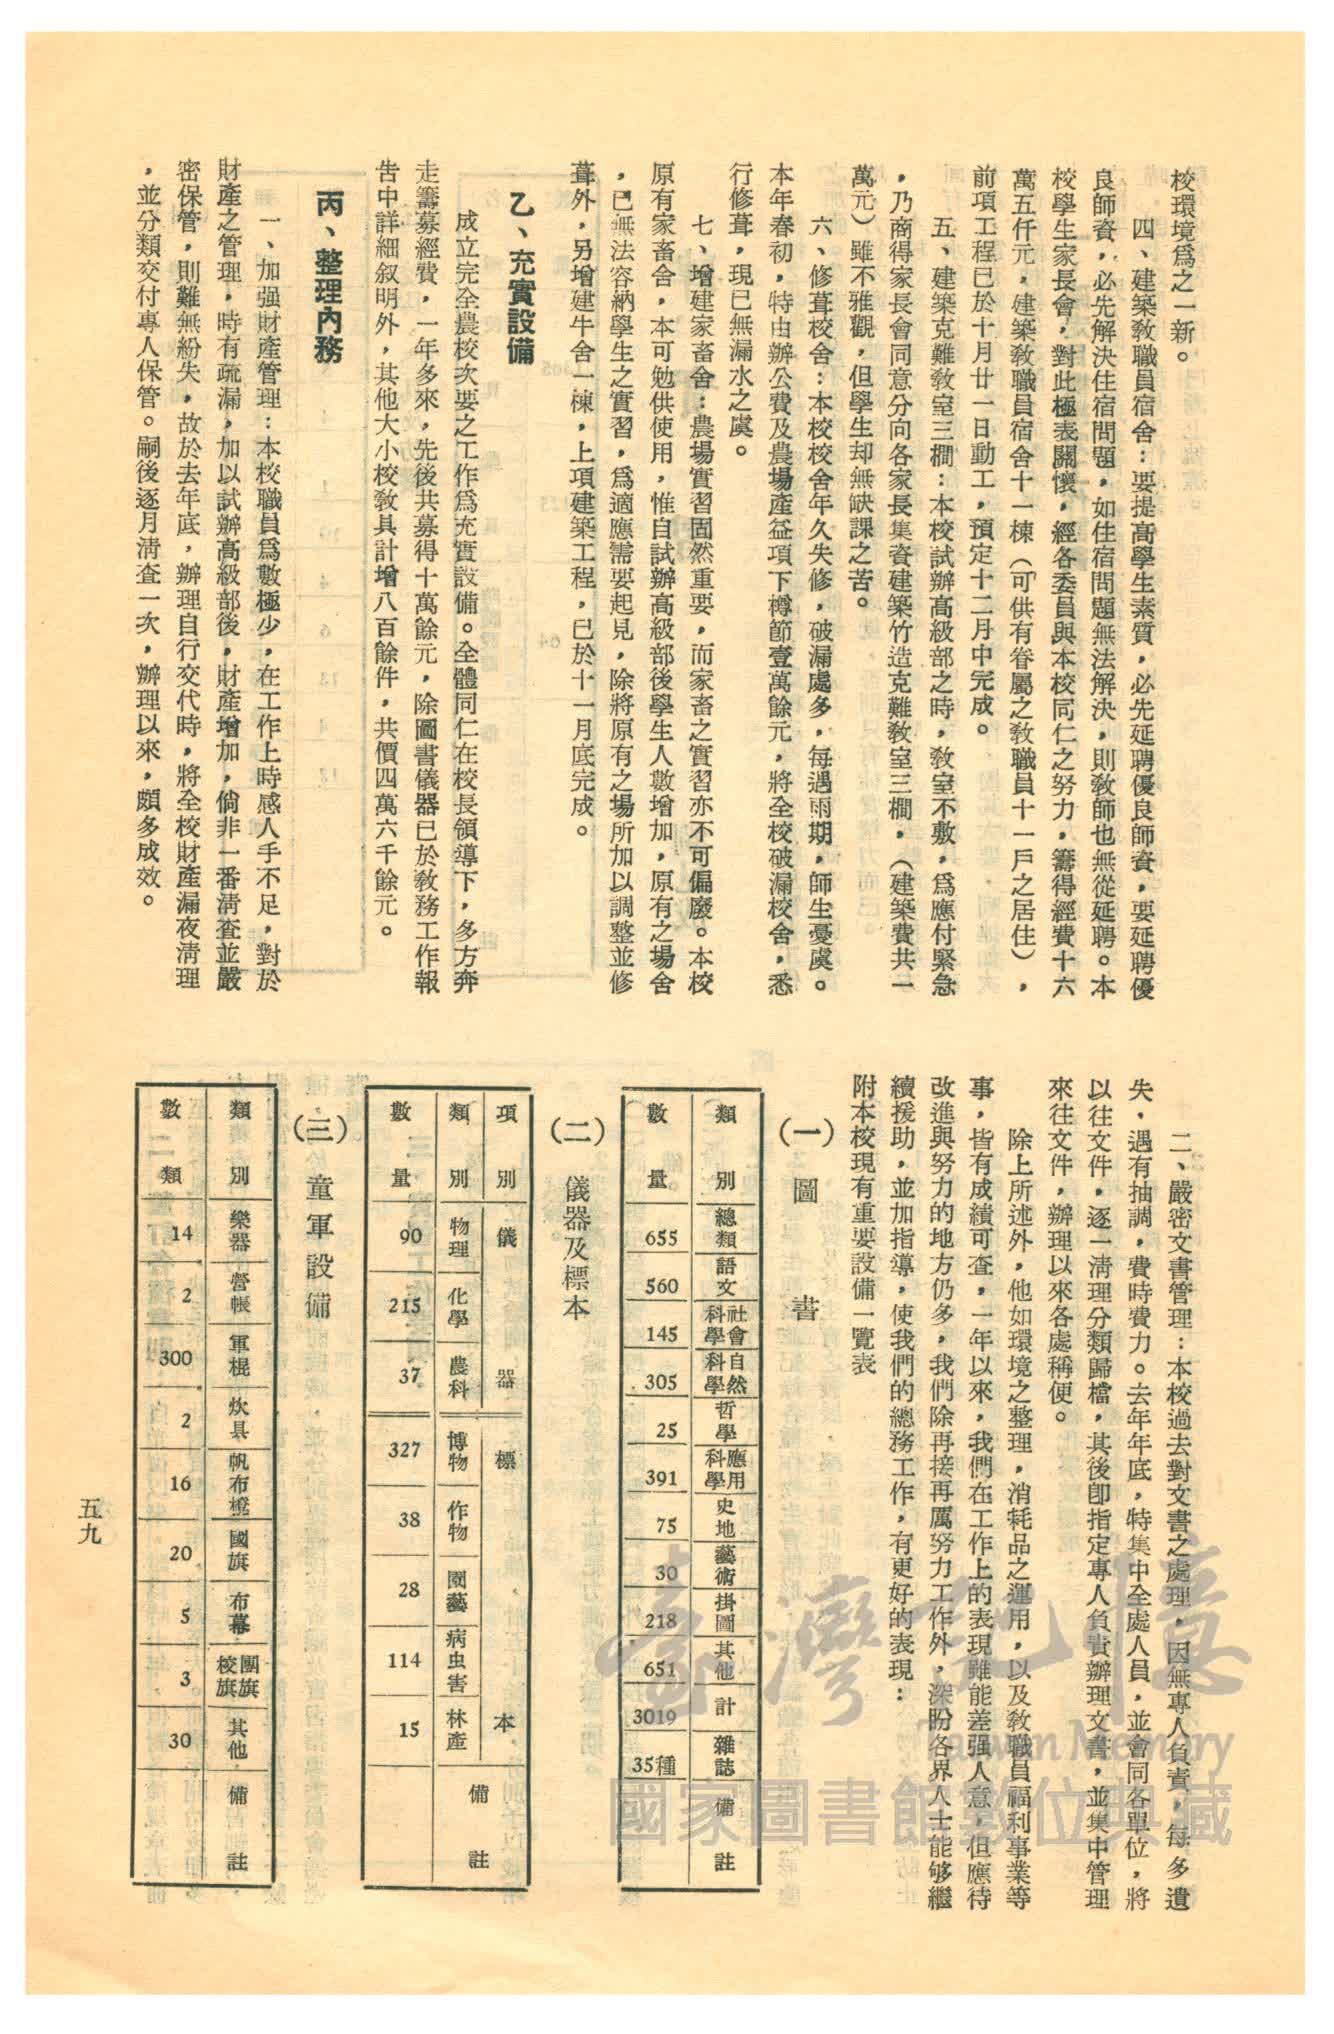 校環境爲之一新。
四、建築敎職員宿舍：要提高學生素質，必先延聘優良師資，要延聘優
良師資，必先解決住宿問題，如住宿問題無法解決，則敎師也無從延聘。本
校學生家長會，對此極表關懷，經各委員與本校同仁之努力，籌得經費十六
萬五仟元，建築敎職員宿舍十一棟（可供有眷屬之敎職員十一戶之居住），
前項工程已於十月廿一日動工，預定十二月中完成。
五、建築克難敎室三櫚：本校試辦高級部之時，敎室不敷，爲應付緊急
，乃商得家長會同意分向各家長集資建築竹造克難敎室三櫚，（建築費共一
萬元）雖不雅觀，但學生却無缺課之苦。
六、修葺校舍：本校校舍年久失修，破漏處多，每遇雨期，師生憂虞。
本年春初，特由辦公費及農場產益項下樽節壹萬餘元，將全校破漏校舍，悉
行修葺，現已無漏水之虞。
七、增建家畜舍：農場實習固然重要，而家畜之實習亦不可偏廢。本校
原有家畜舍，本可勉供使用，惟自試辦高級部後學生人數增加，原有之場舍
，已無法容納學生之實習，爲適應需要起見，除將原有之場所加以調整並修
葺外，另增建牛舍一棟，上項建築工程，已於十一月底完成。
乙、充實設備
成立完全農校次要之工作爲充實設備。全體同仁在校長領導下，多方奔
走籌募經費，一年多來，先後共募得十萬餘元，除圖書儀器已於敎務工作報
告中詳細叙明外，其他大小校敎具計增八百餘件，共價四萬六千餘元。
丙、整理內務
一、加强財產管理：本校職員爲數極少，在工作上時感人手不足，對於
財產之管理，時有疏漏，加以試辦高級部後，財產增加，倘非一番淸査並嚴
密保管，則難無紛失，故於去年底，辦理自行交代時，將全校財產漏夜淸理
，並分類交付專人保管。嗣後逐月淸査一次，辦理以來，頗多成效。
二、嚴密文書管理：本校過去對文書之處理，因無專人負責，每多遺
失，遇有抽調，費時費力。去年年底，特集中全處人員，並會同各單位，將
以往文件，逐一淸理分類歸檔，其後卽指定專人負責辦理文書，並集中管理
來往文件，辦理以來各處稱便。
除上所述外，他如環境之整理，消耗品之運用，以及敎職員福利事業等
事，皆有成績可査，一年以來，我們在工作上的表現雖能差强人意，但應待
改進與努力的地方仍多，我們除再接再厲努力工作外，深盼各界人士能够繼
續援助，並加指導，使我們的總務工作，有更好的表現：
附本校現有重要設備一覽表
（一）圖書
類別 總類 語文 社會科學 自然科學 哲學 應用科學 史地 藝術 掛圖 其他 計 雜誌 備註
數量 655 560 145 305 25 391 75 30 218 651 3019 35種
（二）儀器及標本
項別 儀器 標本 備註
類別 物理 化學 農科 博物 作物 園藝 病虫害 林產
數量 90 215 37 327 38 28 114 15
（三）童軍設備
類別 樂器 營帳 軍棍 炊具 帆布櫈 國旗 布幕 團旗校旗 其他 備註
數類 14 2 300 2 16 20 5 3 30
五九
臺灣記憶
Taiwan Memory
國家圖書館數位典藏